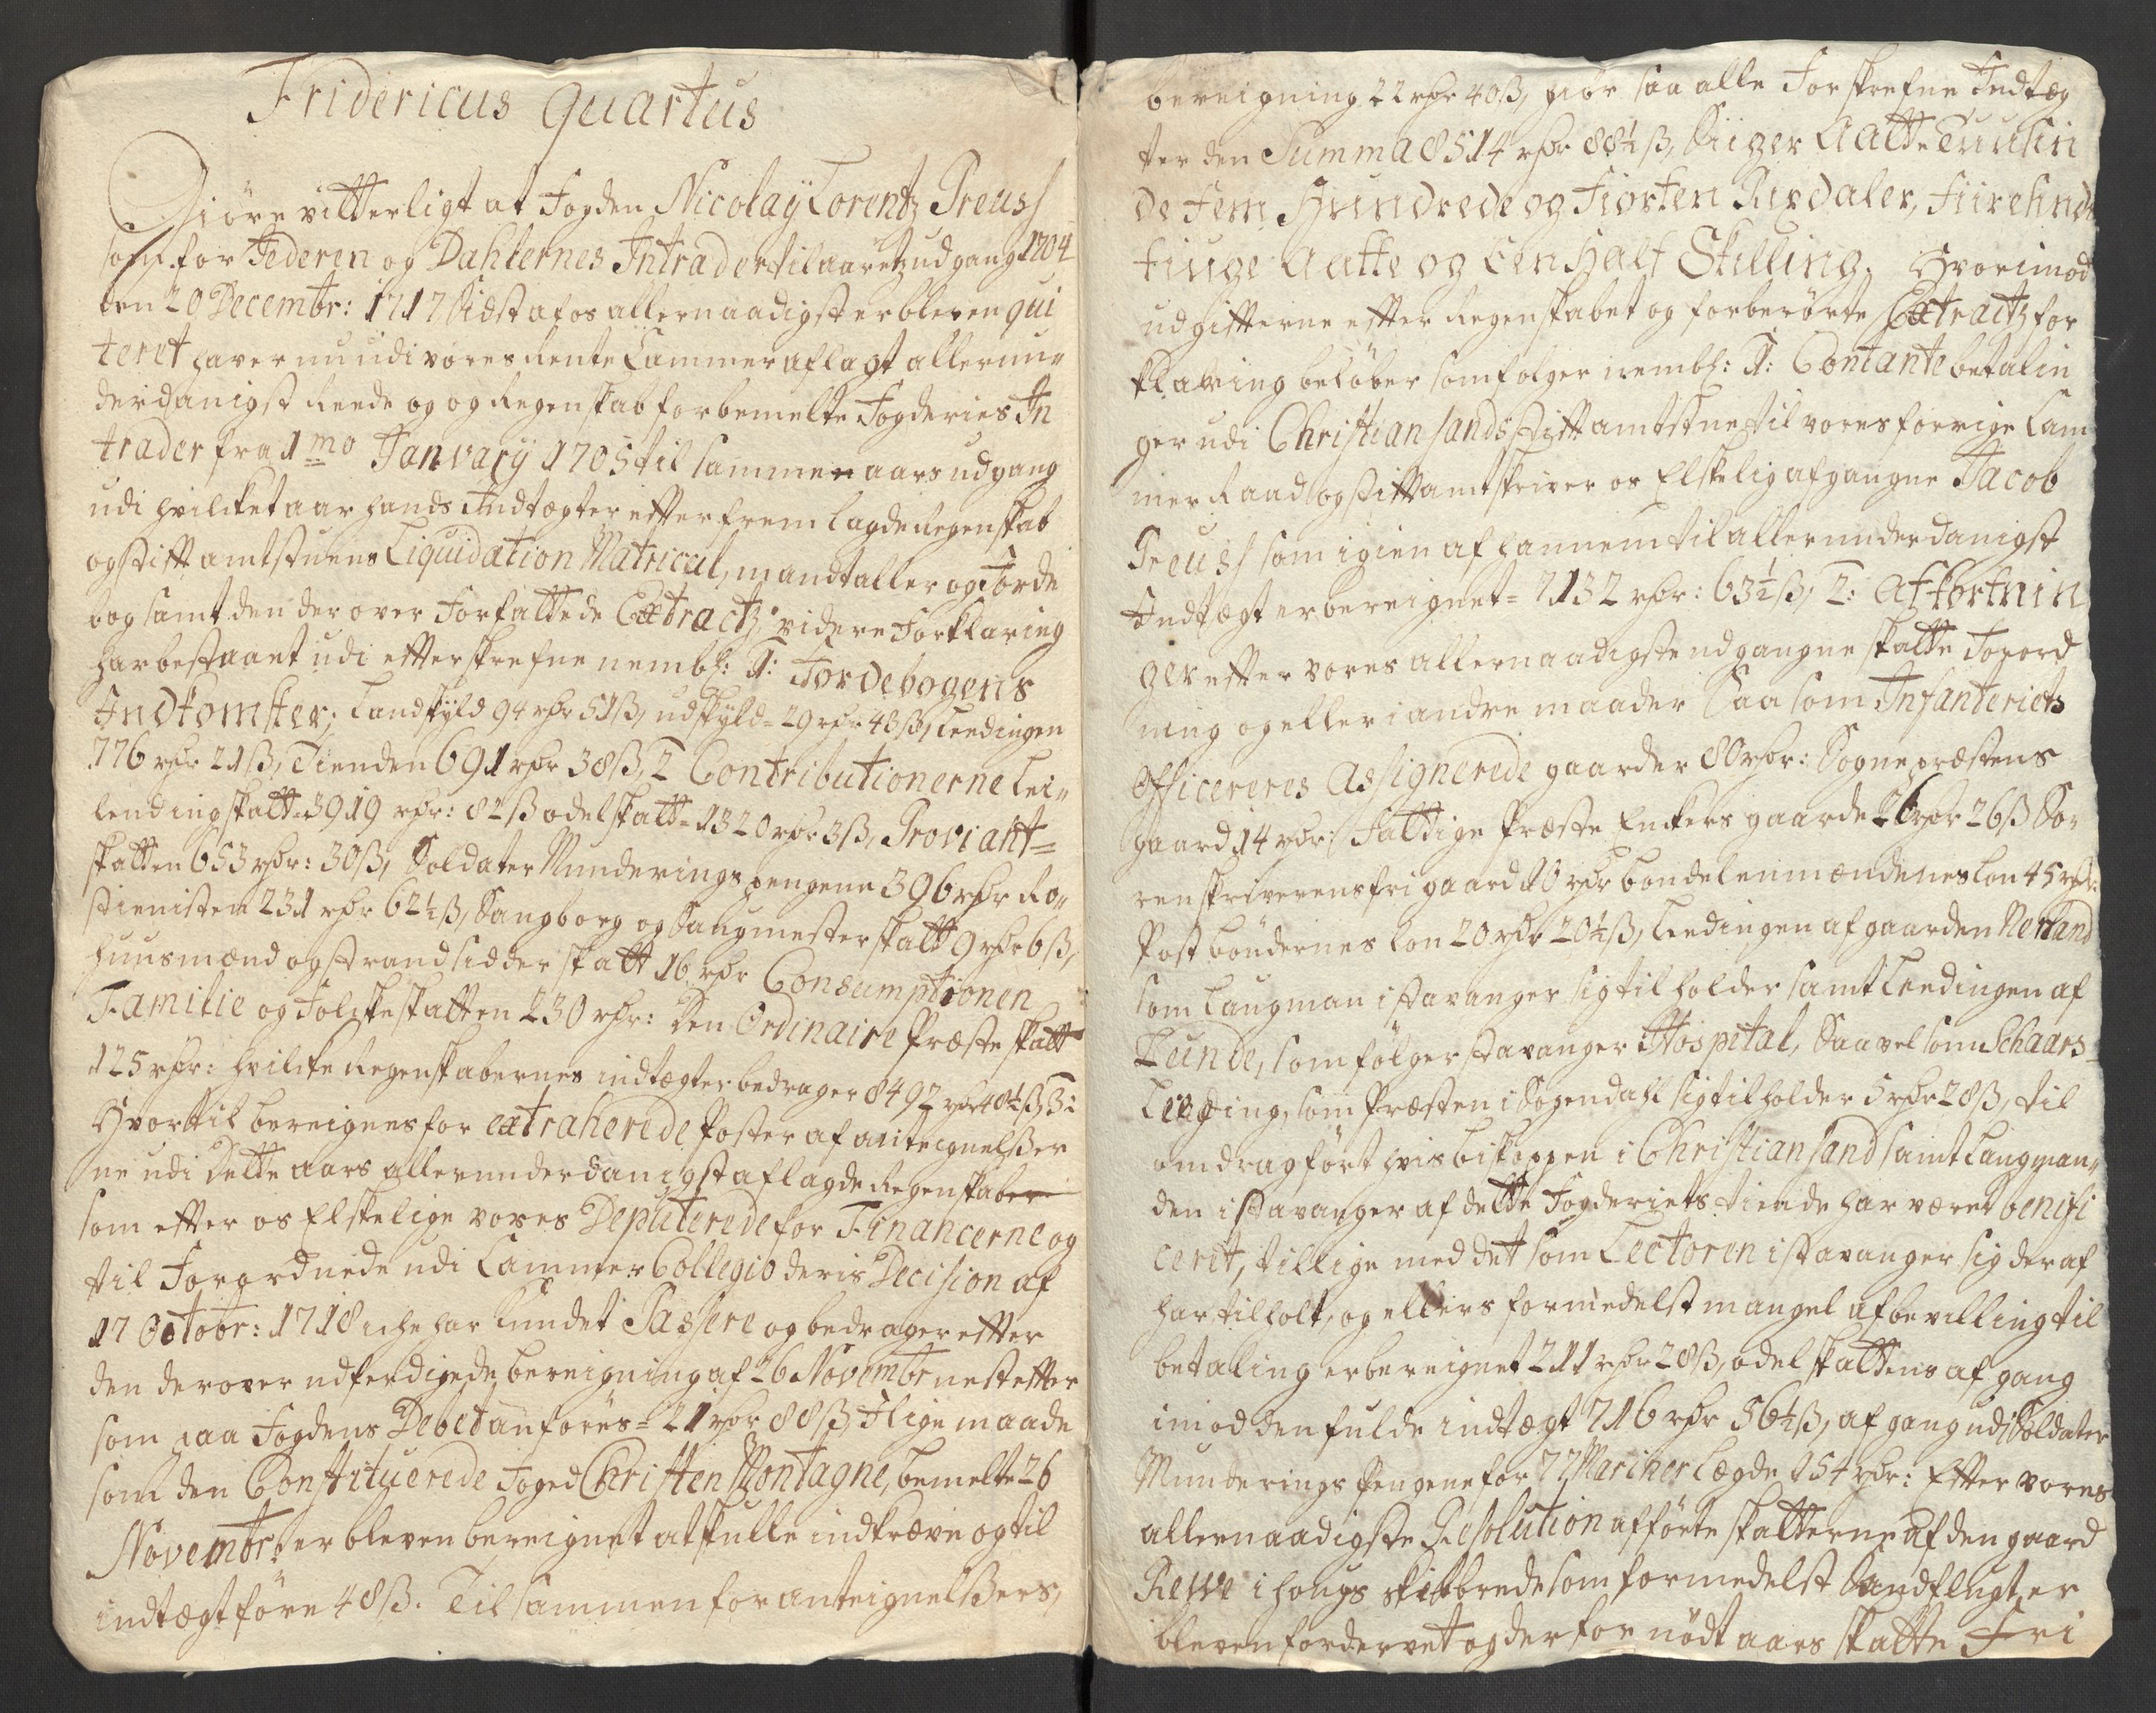 Fridericus Quartus
Giöre vitterligt at Fogden Nicolaÿ Lorentz Preuss
som for Jederen og Dahlernes Intrader til aaretz udgang 1704
den 20 Decembr: 1717 sidst af os allernaadigst er bleven qui
teret haver nu udi vores Rente Cammer aflagt allerun„
derdanigst Reede og og Regenskab for bemelte Fogderies In
trader fra 1mo Janvarÿ 1705 til sammen aars udgang
udi hvilcket aar hands Indtægter efter fremlagde Regenskab
og stiftamtstuens Liquidation Matricul, mandtaller og Jorde
bog samt den der over forfattede Extractz videre Forklaring
har bestaaet udi efterskrefne nembl: 1: Jordebogens
Indkomster; Landskyld 94 rdr 51ß, udskyld= 29 rdr 43ß, Leedingen
776 rdr 21ß, Tienden 691 rdr 38ß, 2 Contributionerne Lei„
lendingskatt= 3919 rdr: 82ß odelskatt= 1320 rdr 3ß, Proviant=
skatten 653 rdr: 30ß, Soldater Munderings pengene 396 rdr Ro„
stienisten 231 rdr 62½ß, Saugborg og Saugmesterskatt 9 rdr 6ß,
huusmænd og strandsidder skatt 16 rdr Consumptionen
Familie og Folckeskatten 230 rdr: den Ordinaire Præsteskatt
125 rdr: hvilcke Regenskabernes indtægter bedrager 8492 rdr 48½ß 3:
Hvortil bereignes for extraherede Poster af anteignelßer
ne udi dette aars allerunderdanigst aflagde Regenskaber
som efter os Elskelige vores Deputerede for Financerne og
til Forordnede udi Cammer Collegio deris Decision af
17 Octobr: 1718 iche har kundet Passere og bedrager efter
den derover udferdigede bereigning af 26 Novembr nest efter
som paa Fogdens Debet anföres= 21 rdr 88ß, Ilige maade
som den Constituerede Foged Christen Montagne, bemelte 26
Novembr: er bleven bereignet at skulle indkræve og til
indtægt före 48ß. Tilsammen for anteignelßers,
bereigning 22 rdr 40ß, giör saa alle Forskrefne Indtæg
ter den Summa 8514 rdr 88½ß, Siiger Aatte Tuusin
de Fem Hundrede og Fiorten Rixdaler, Fiiresinds
tiuge Aatte og Een Half Skilling. Hvorimod
udgifterne efter Regenskabet og forberörte Extractz for
klaring belöber som folger nembl: 1: Contante betalin
ger udi Christiansands stiftamtstue til vores forrige Cam
mer Raad og stiftamtskriver os Elskelig afgangne Jacob
Preuss som igien af hannem til allerunderdanigst
Indtægt er bereignet= 7132 rdr: 63½ß, 2: Afkortnin
ger efter vores allernaadigste udgangne skatte Forord
ning og eller i andre maader saasom Infanteriets
Officereres Assignerede gaarder 80 rdr: Sognepræstens
gaard 14 rdr: Fattige Præste Enkers gaarde 26 rdr 26ß So„
renskriverens frigaard 10 rdr bondelenmændenes Lon 45 rdr:
Postböndernes Lon 20 rdr 20½ß, Leedingen af gaarden Nerland
som Laugman i Stavanger sig tilholder samt Leedingen af
Lunde, som fölger Stavanger Hospital, Saavelsom Schaars=
Leeding, som Præsten i Sogendahl sig tilholder 5 rdr 28ß, til
omdrag fört hvis biskoppen i Christiansand samt Laugman„
den i Stavanger af dette Fogderiets tiende har været benifi
ceret, tillige med det som Lectoren i Stavanger sig der af
har tilholt, og ellers formedelst mangel af bevilling til
betaling er bereignet 211 rdr 28ß, odelskattens afgang
imod den fulde indtægt 716 rdr 56½ß, afgang udi Soldater
Munderings Pengene for 77 Mariner Lægde 154 rdr: Efter vores
allernaadigste Resolution afförte skatterne af den gaard
Rewe i Hougs skibbrede som formedelst Sandflugt er
bleven fordervet og derfor nödt aars skatte Fri